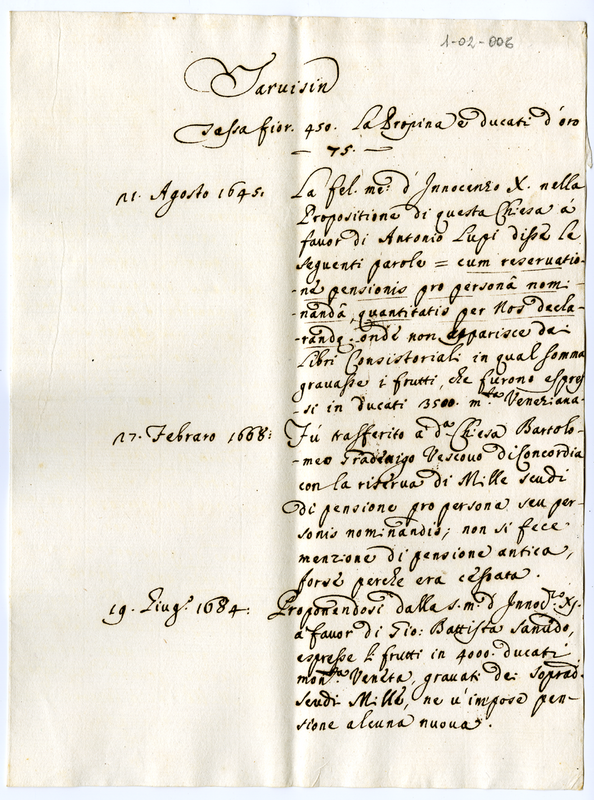 1-02-006
Tarvisin
Tassa fior. 450. La Propina è ducati d'oro
— 75. —
21. Agosto 1645. La fel. me: d'Innocenzo X. nella
Propositione di questa Chiesa à
favor di Antonio Lupi disse le
seguenti parole = cum reservatio-
-ne pensionis pro personâ nom-
-nandâ, quantitatis per Nos decla-
-randę: onde non apparisce da
Libri Consistoriali in qual somma
gravasse i frutti, che furono espres-
-si in ducati 3500. m.ta Veneziana
27. Febraro 1668: Fù trasferito a d.a Chiesa Bartolo-
-meo Gradenigo Vescovo di Concordia
con la riserva di Mille scudi
di pensione pro persona seu per-
sonis nominandis; non si fece
menzione di pensione antica,
forse perche era cessata.
19. Giug.o 1684: Proponendosi dalla s.m. d'Innoc.zo XI.
a favor di Gio: Battista Sanudo,
espresse li frutti in 4000. ducati
mon.ta Veneta, gravati dei soprad.
scudi Mille, ne v'impose pen-
sione alcuna nuova.